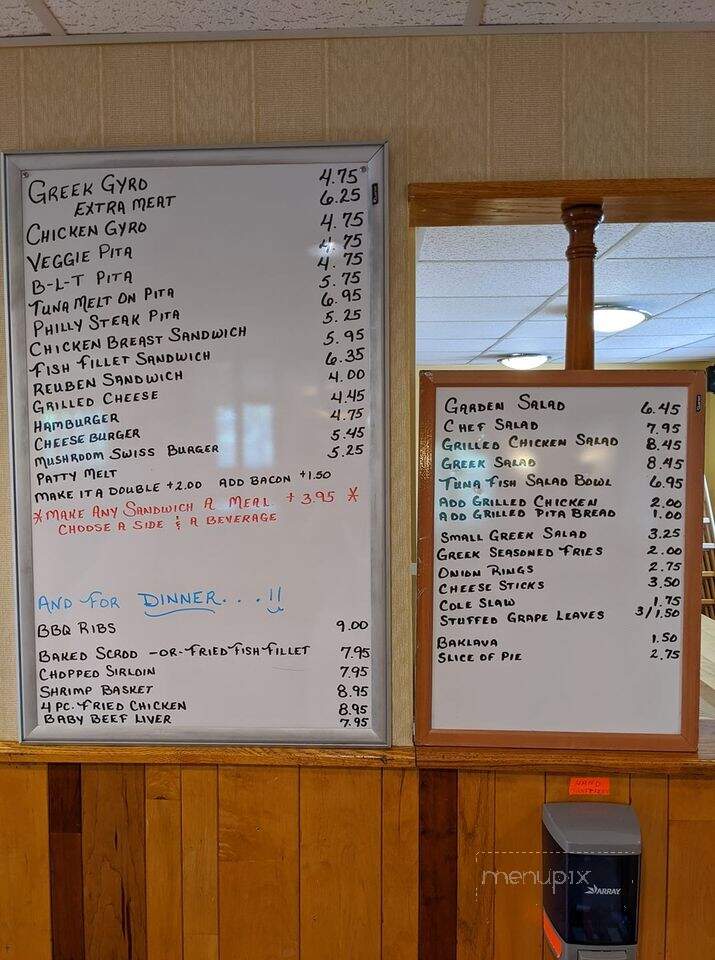 GREEK GYRO 4.75
EXTRA MEAT 6.25
CHICKEN GYRO 4.75
VEGGIE PITA 4.75
B-L-T PITA 4.75
TUNA MELT ON PITA 5.75
PHILLY STEAK PITA 6.95
CHICKEN BREAST SANDWICH 5.25
FISH FILLET SANDWICH 5.95
REUBEN SANDWICH 6.35
GRILLED CHEESE 4.00
HAMBURGER 4.45
CHEESEBURGER 4.75
MUSHROOM SWISS BURGER 5.45
PATTY MELT 5.25
MAKE IT A DOUBLE +2.00 ADD BACON +1.50
*MAKE ANY SANDWICH A MEAL +3.95 *
CHOOSE A SIDE & A BEVERAGE
AND FOR DINNER...!!
BBQ RIBS 9.00
BAKED SCROD -OR- FRIED FISH FILLET 7.95
CHOPPED SIRLOIN 7.95
SHRIMP BASKET 8.95
4 PC. FRIED CHICKEN 8.95
BABY BEEF LIVER 7.95
GARDEN SALAD 6.45
CHEF SALAD 7.95
GRILLED CHICKEN SALAD 8.45
GREEK SALAD 8.45
TUNA FISH SALAD BOWL 6.95
ADD GRILLED CHICKEN 2.00
ADD GRILLED PITA BREAD 1.00
SMALL GREEK SALAD 3.25
GREEK SEASONED FRIES 2.00
ONION RINGS 2.75
CHEESE STICKS 3.50
COLE SLAW 1.75
STUFFED GRAPE LEAVES 3/1.50
BAKLAVA 1.50
SLICE OF PIE 2.75
HAND
menupix
ARRAY